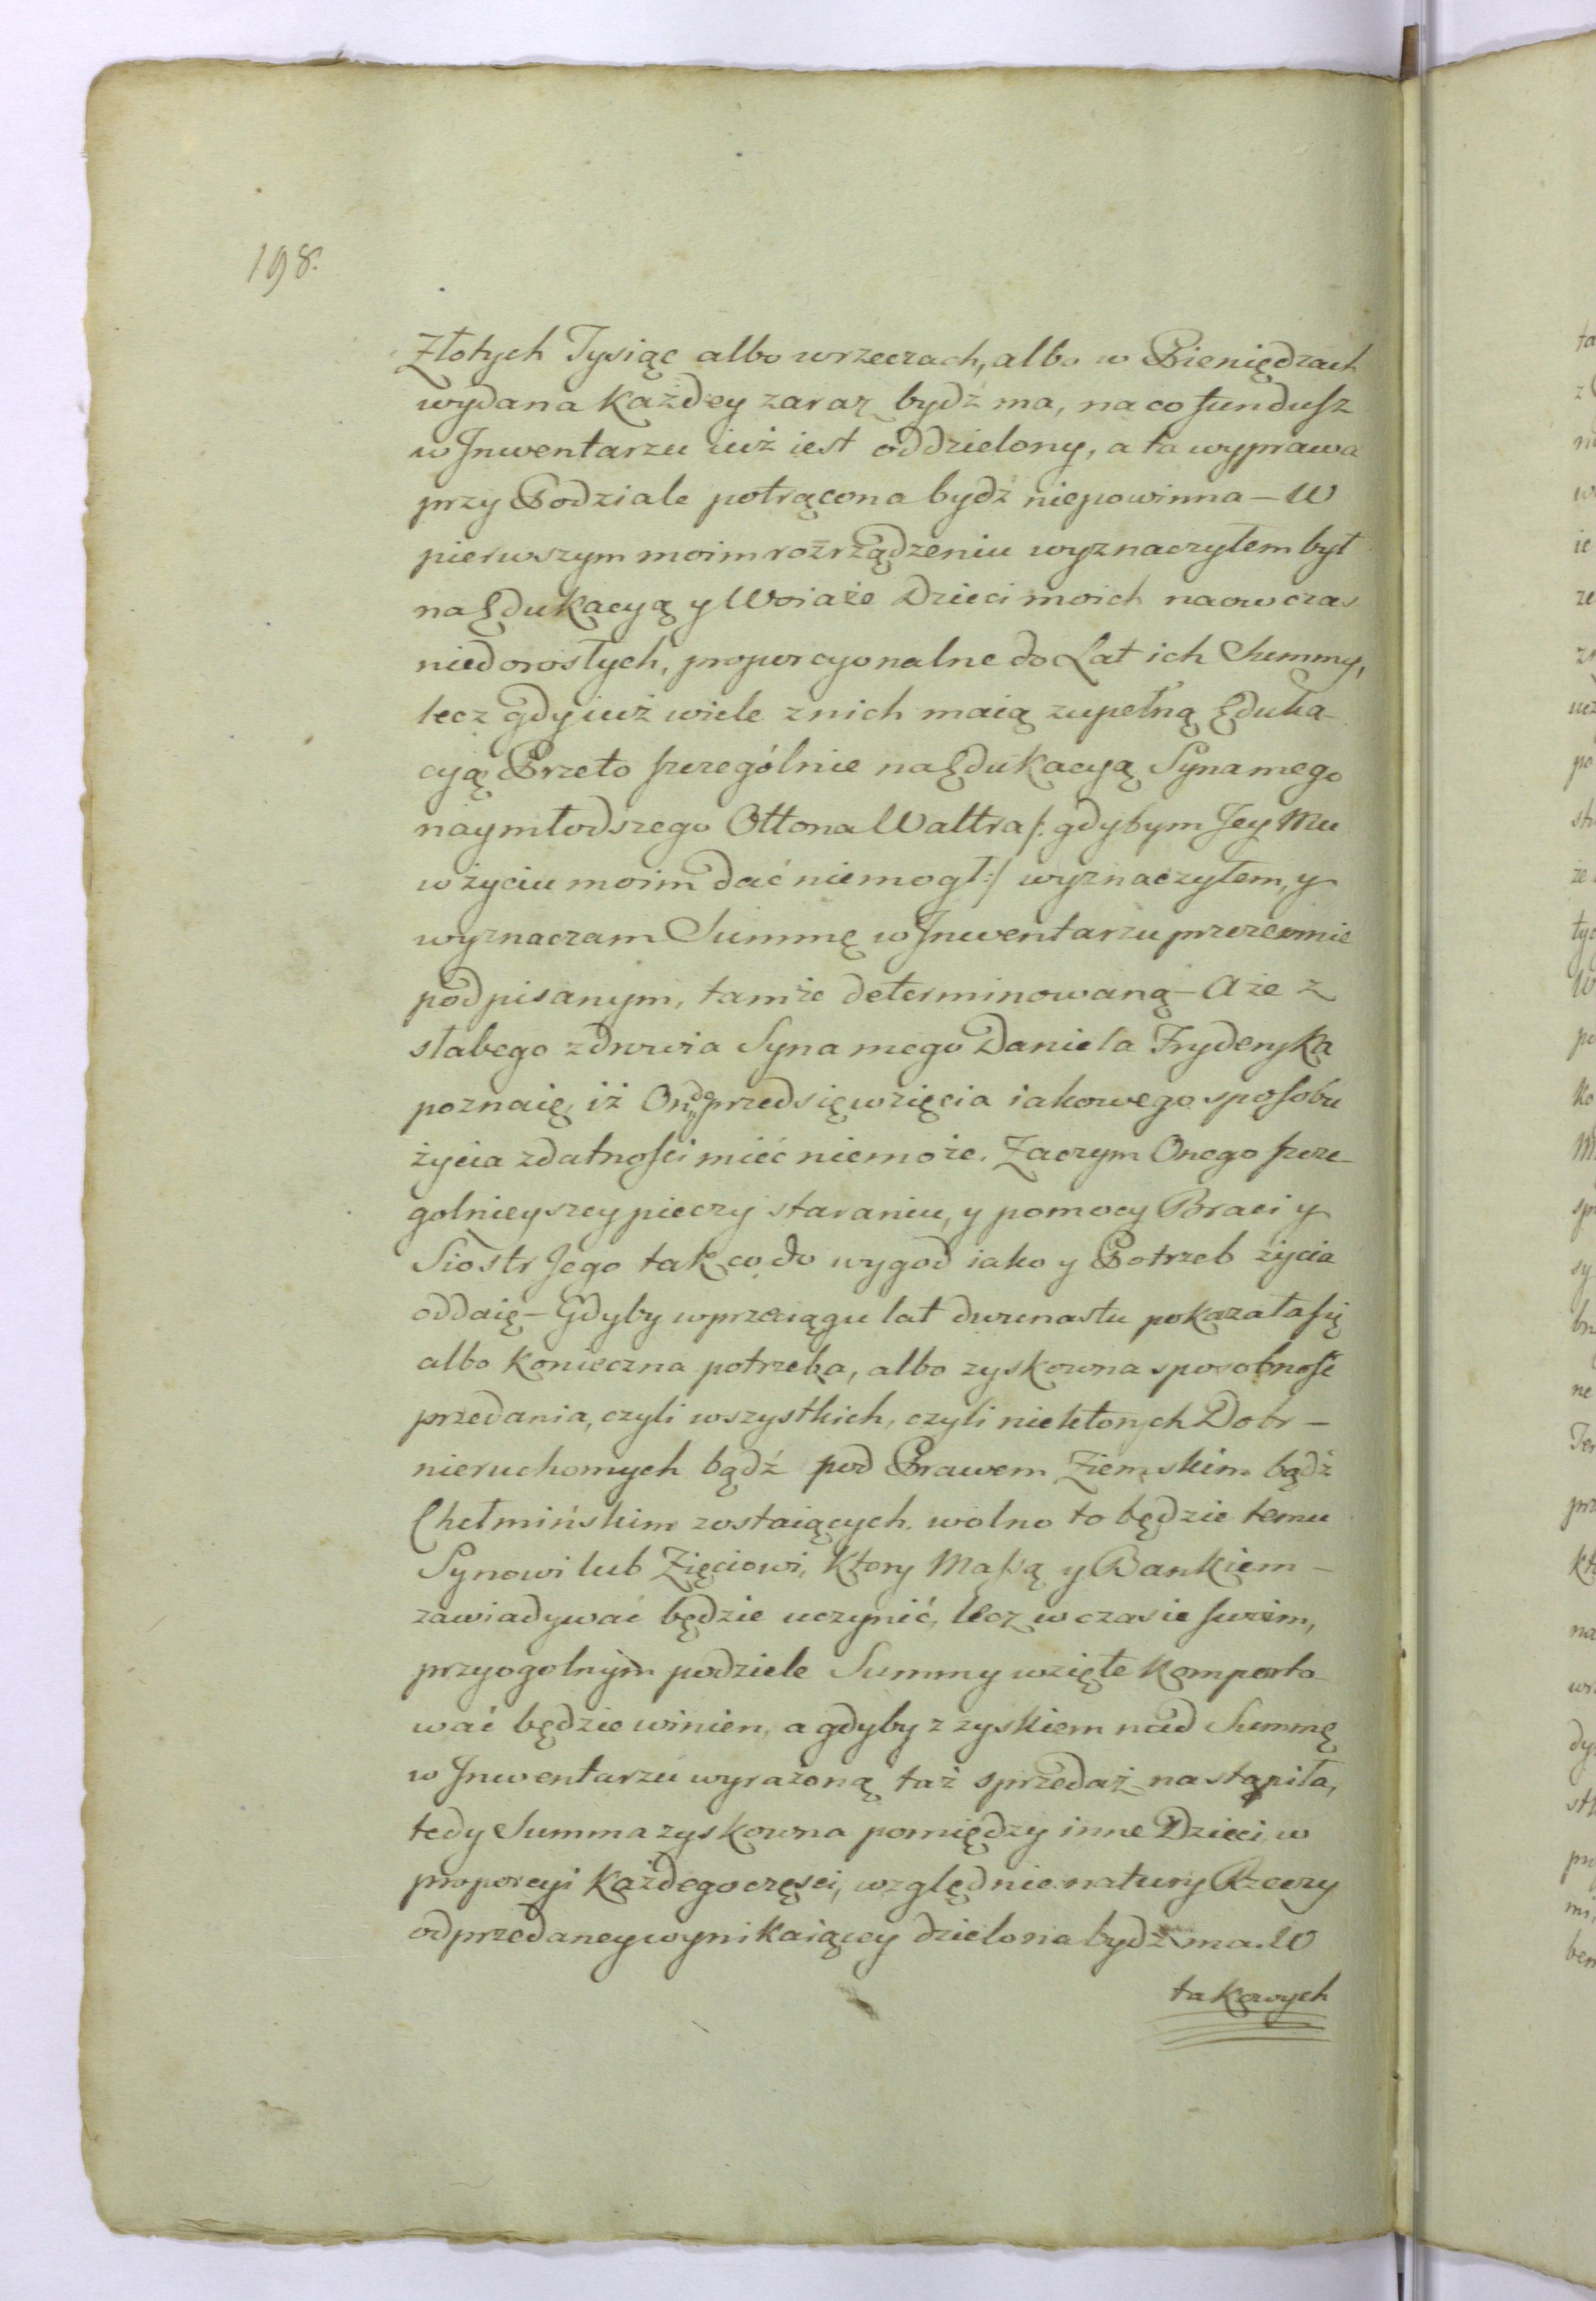 198.
Złotych Tysiąc albo wrzeczach, albo w Pieniędzach
wydana każdey zaraz bydź ma, na co fundusz
w Inwentarzu iuż iest oddzielony, a ta wyprawa
przy Podziale potrącona bydź niepowinna – W
pierwszym moim rozrządzeniu wyznaczyłem był
na Edukacyą y Woiaże Dzieci moich naowczas
niedorosłych, proporcyonalne do Lat ich Summy,
lecz gdy iuż wiele znich maią zupełną Eduka-
cyą Przeto szczególnie na Edukacyą Syna mego
naymłodszego Ottona Waltra /: gdybym Jey Mu
w życiu moim dać niemogł :/ wyznaczyłem, y
wyznaczam Summę w Inwentarzu przezemnie
podpisanym, tamże determinowaną – A że z
słabego zdrowia Syna mego Daniela Fryderyka
poznaię, iż On do przedsięwzięcia iakowego sposobu
życia zdatności mieć niemoże. Zaczym Onego szcze-
golnieyszey pieczy staraniu, y pomocy Braci y
Siostr Jego tak co do wygod iako y Potrzeb życia
oddaię – Gdyby wprzeciągu lat dwunastu pokazałasię
albo konieczna potrzeba, albo zyskowna sposobność
przedania, czyli wszystkich, czyli niektorych Dobr –
nieruchomych bądź pod Prawem Ziemskim bądź
Chełmińskim zostaiących. wolno to będzie temu
Synowi lub Zięciowi, ktory Massą y Bankiem –
zawiadywać będzie uczynić, lecz w czasie swoim,
przyogolnym podziele Summy wzięte komporto-
wać będzie winien, a gdyby z zyskiem nad Summę
w Inwentarzu wyrażoną taż sprzedaż nastąpiła,
tedy Summa zyskowna pomiędzy inne Dzieci, w
proporcyi każdego części, względnie natury Rzeczy
odprzedaney wynikaiącey dzielona bydź ma. W
takowych